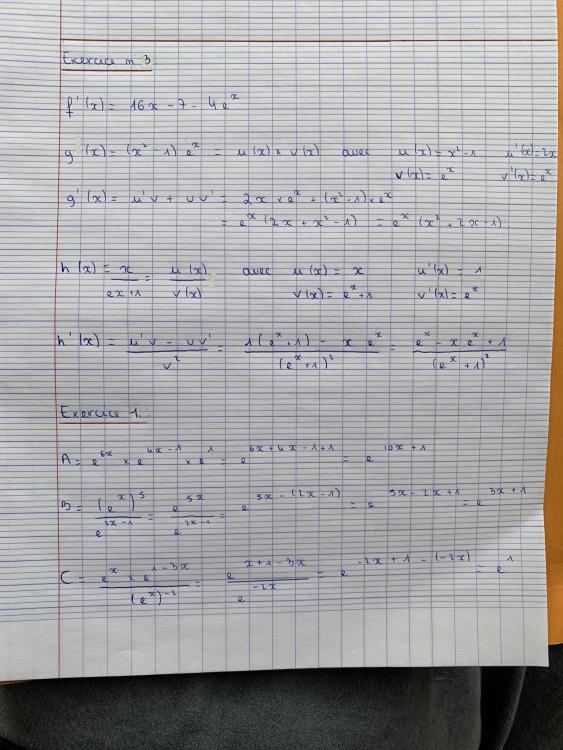 Exercice n 3.
f'(x) = 16x - 7 - 4e^x
g (x) = (x² - 1) e^x = u(x) × v(x) avec u(x) = x² - 1 u'(x) = 2x
v(x) = e^x v'(x) = e^x
g'(x) = u'v + uv' = 2x × e^x + (x² - 1) × e^x
= e^x (2x + x² - 1) = e^x (x² + 2x - 1).
h(x) = x / (ex + 1) = u(x) / v(x) avec u(x) = x u'(x) = 1
v(x) = e^x + 1 v'(x) = e^x
h'(x) = (u'v - uv') / v² = (1(e^x + 1) - x e^x) / (e^x + 1)² = (e^x - x e^x + 1) / (e^x + 1)²
Exercice 1.:
A = e^(6x) × e^(4x - 1) × e^1 = e^(6x + 4x - 1 + 1) = e^(10x + 1)
B = (e^x)^5 / e^(2x - 1) = e^(5x) / e^(2x - 1) = e^(5x - (2x - 1)) = e^(5x - 2x + 1) = e^(3x + 1)
C = (e^x × e^(1 - 3x)) / (e^x)^(-2) = e^(x + 1 - 3x) / e^(-2x) = e^(-2x + 1 - (-2x)) = e^1